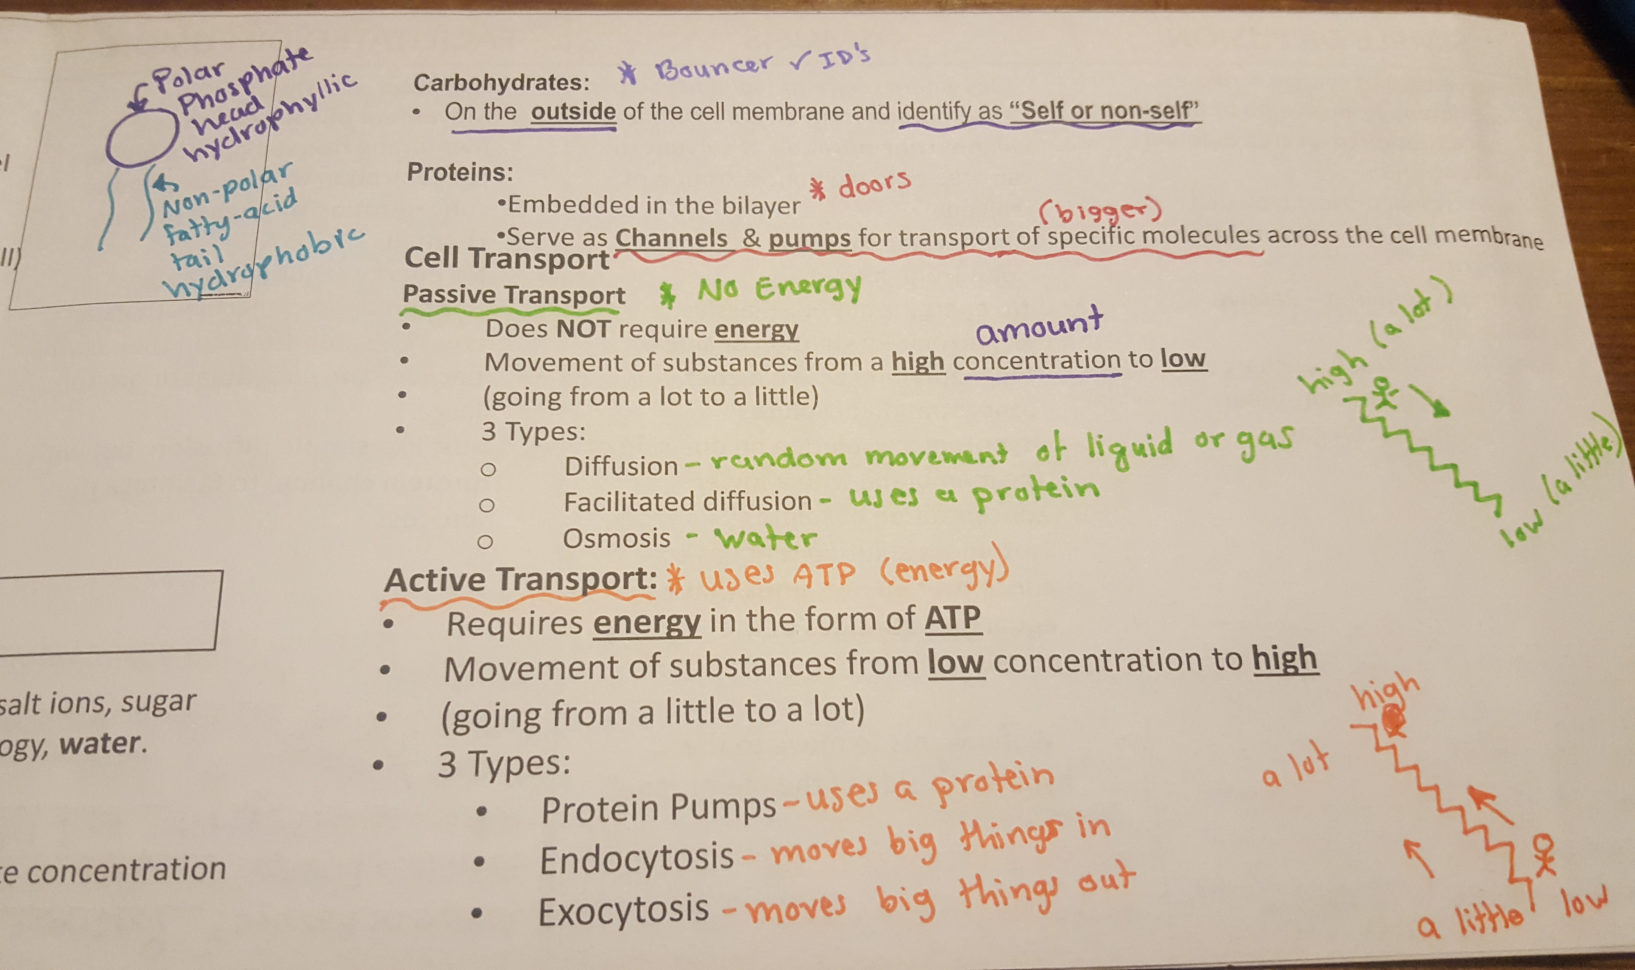 Polar
Phosphate
head
hydrophyllic
Non-polar
fatty-acid
tail
hydrophobic
salt ions, sugar
ogy, water.
e concentration
Carbohydrates: * Bouncer ✓ ID's
• On the outside of the cell membrane and identify as “Self or non-self”
Proteins:
•Embedded in the bilayer * doors
(bigger)
•Serve as Channels & pumps for transport of specific molecules across the cell membrane
Cell Transport
Passive Transport * No Energy
• Does NOT require energy
amount
• Movement of substances from a high concentration to low
• (going from a lot to a little)
• 3 Types:
o Diffusion - random movement of liquid or gas
o Facilitated diffusion - uses a protein
o Osmosis - water
high (a lot)
low (a little)
Active Transport: * uses ATP (energy)
• Requires energy in the form of ATP
• Movement of substances from low concentration to high
• (going from a little to a lot)
• 3 Types:
• Protein Pumps - uses a protein
• Endocytosis - moves big things in
• Exocytosis - moves big things out
high
a lot
a little low